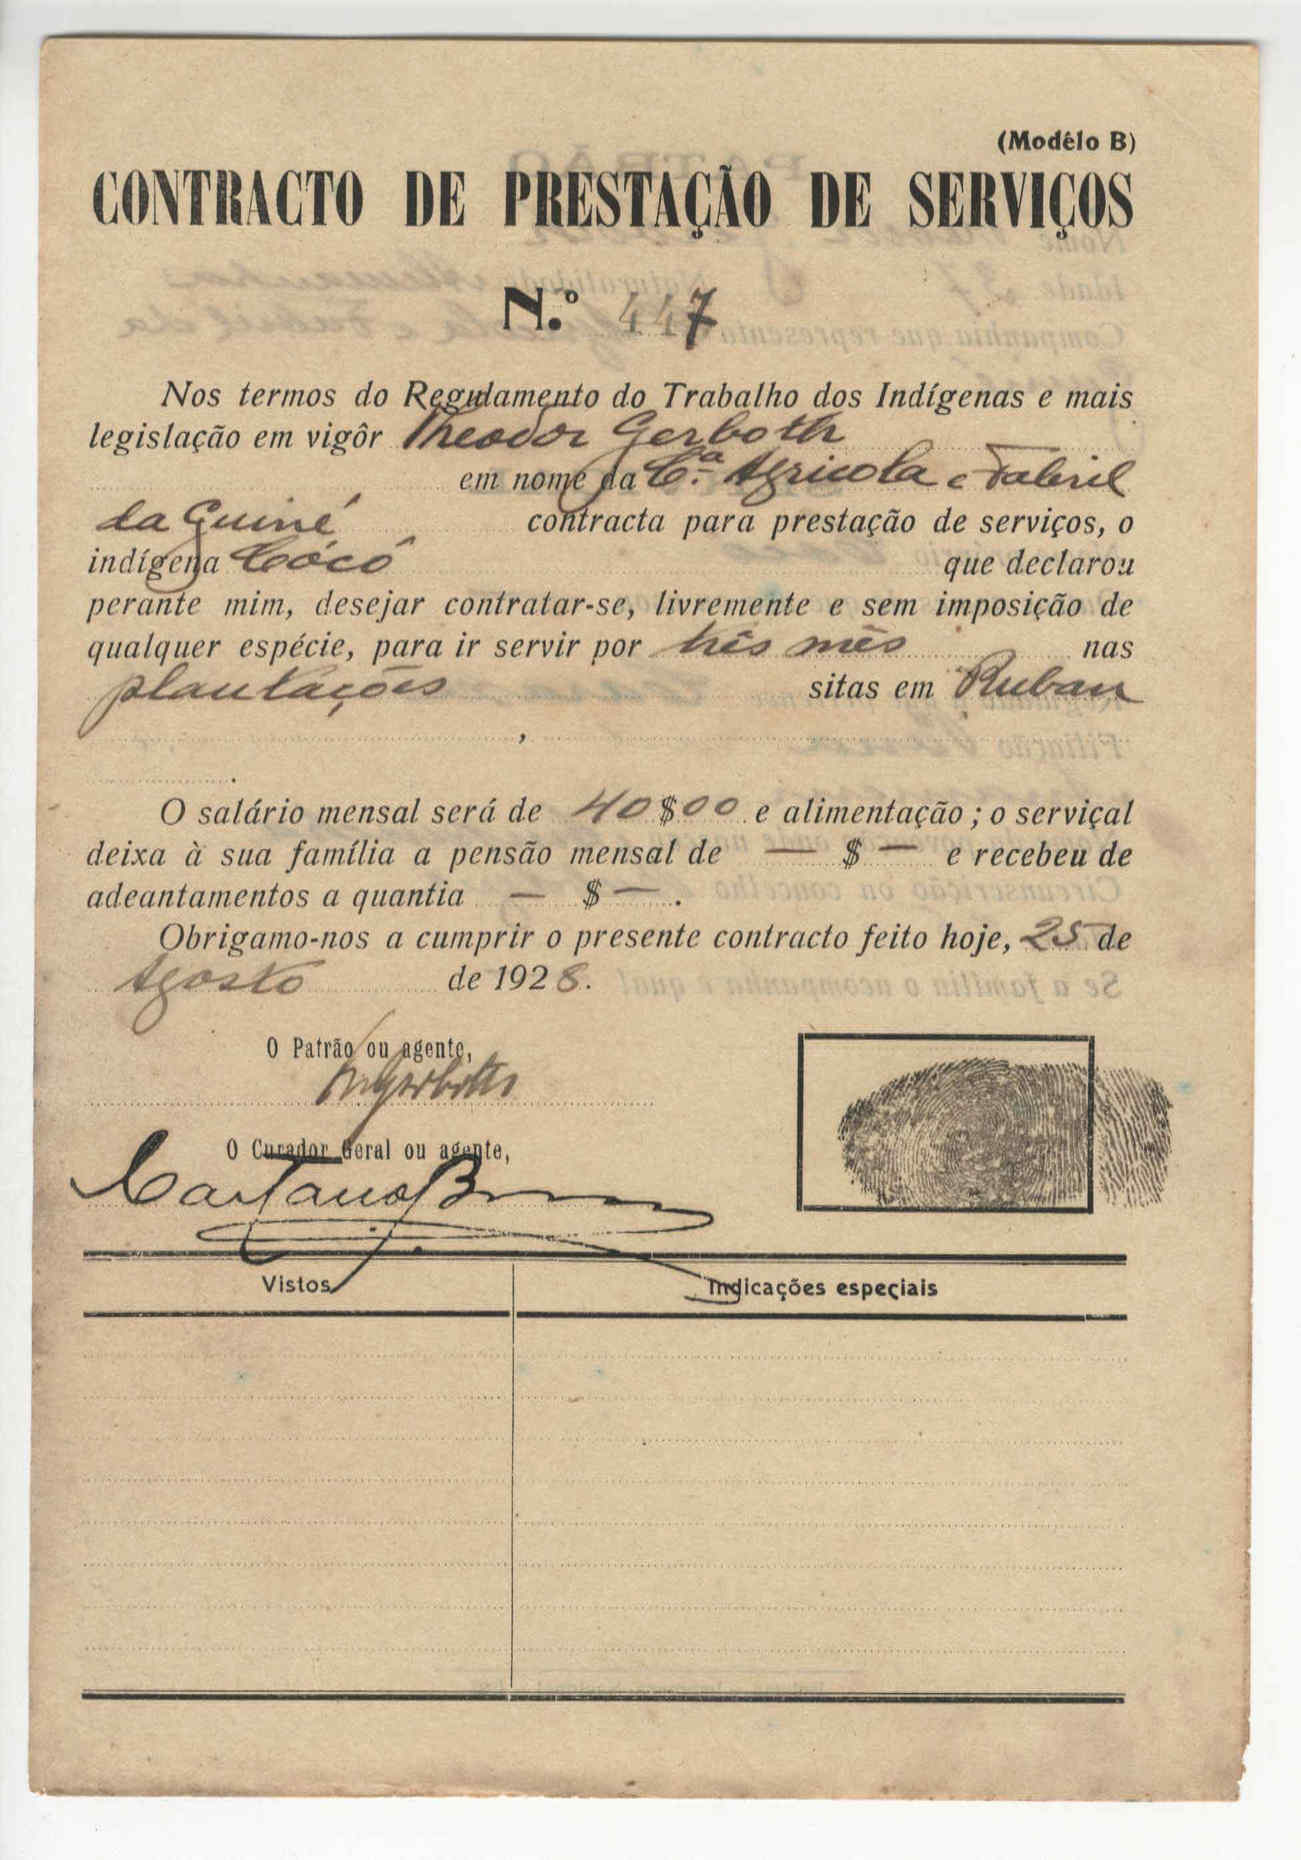 (Modêlo B)
CONTRACTO DE PRESTAÇÃO DE SERVIÇOS
N.º 447
Nos termos do Regulamento do Trabalho dos Indígenas e mais
legislação em vigôr Theodor Gerboth
em nome da C.ª Agricola e Fabril
da Guiné contracta para prestação de serviços, o
indígena Cócó que declarou
perante mim, desejar contratar-se, livremente e sem imposição de
qualquer espécie, para ir servir por três mês nas
plantações sitas em Ruban
,
.
O salário mensal será de 40$00 e alimentação; o serviçal
deixa à sua família a pensão mensal de — $ — e recebeu de
adeantamentos a quantia — $ — .
Obrigamo-nos a cumprir o presente contracto feito hoje, 25 de
Agosto de 1928.
O Patrão ou agente,
Gerboth
O Curador Geral ou agente,
Caetano
Vistos
Indicações especiais